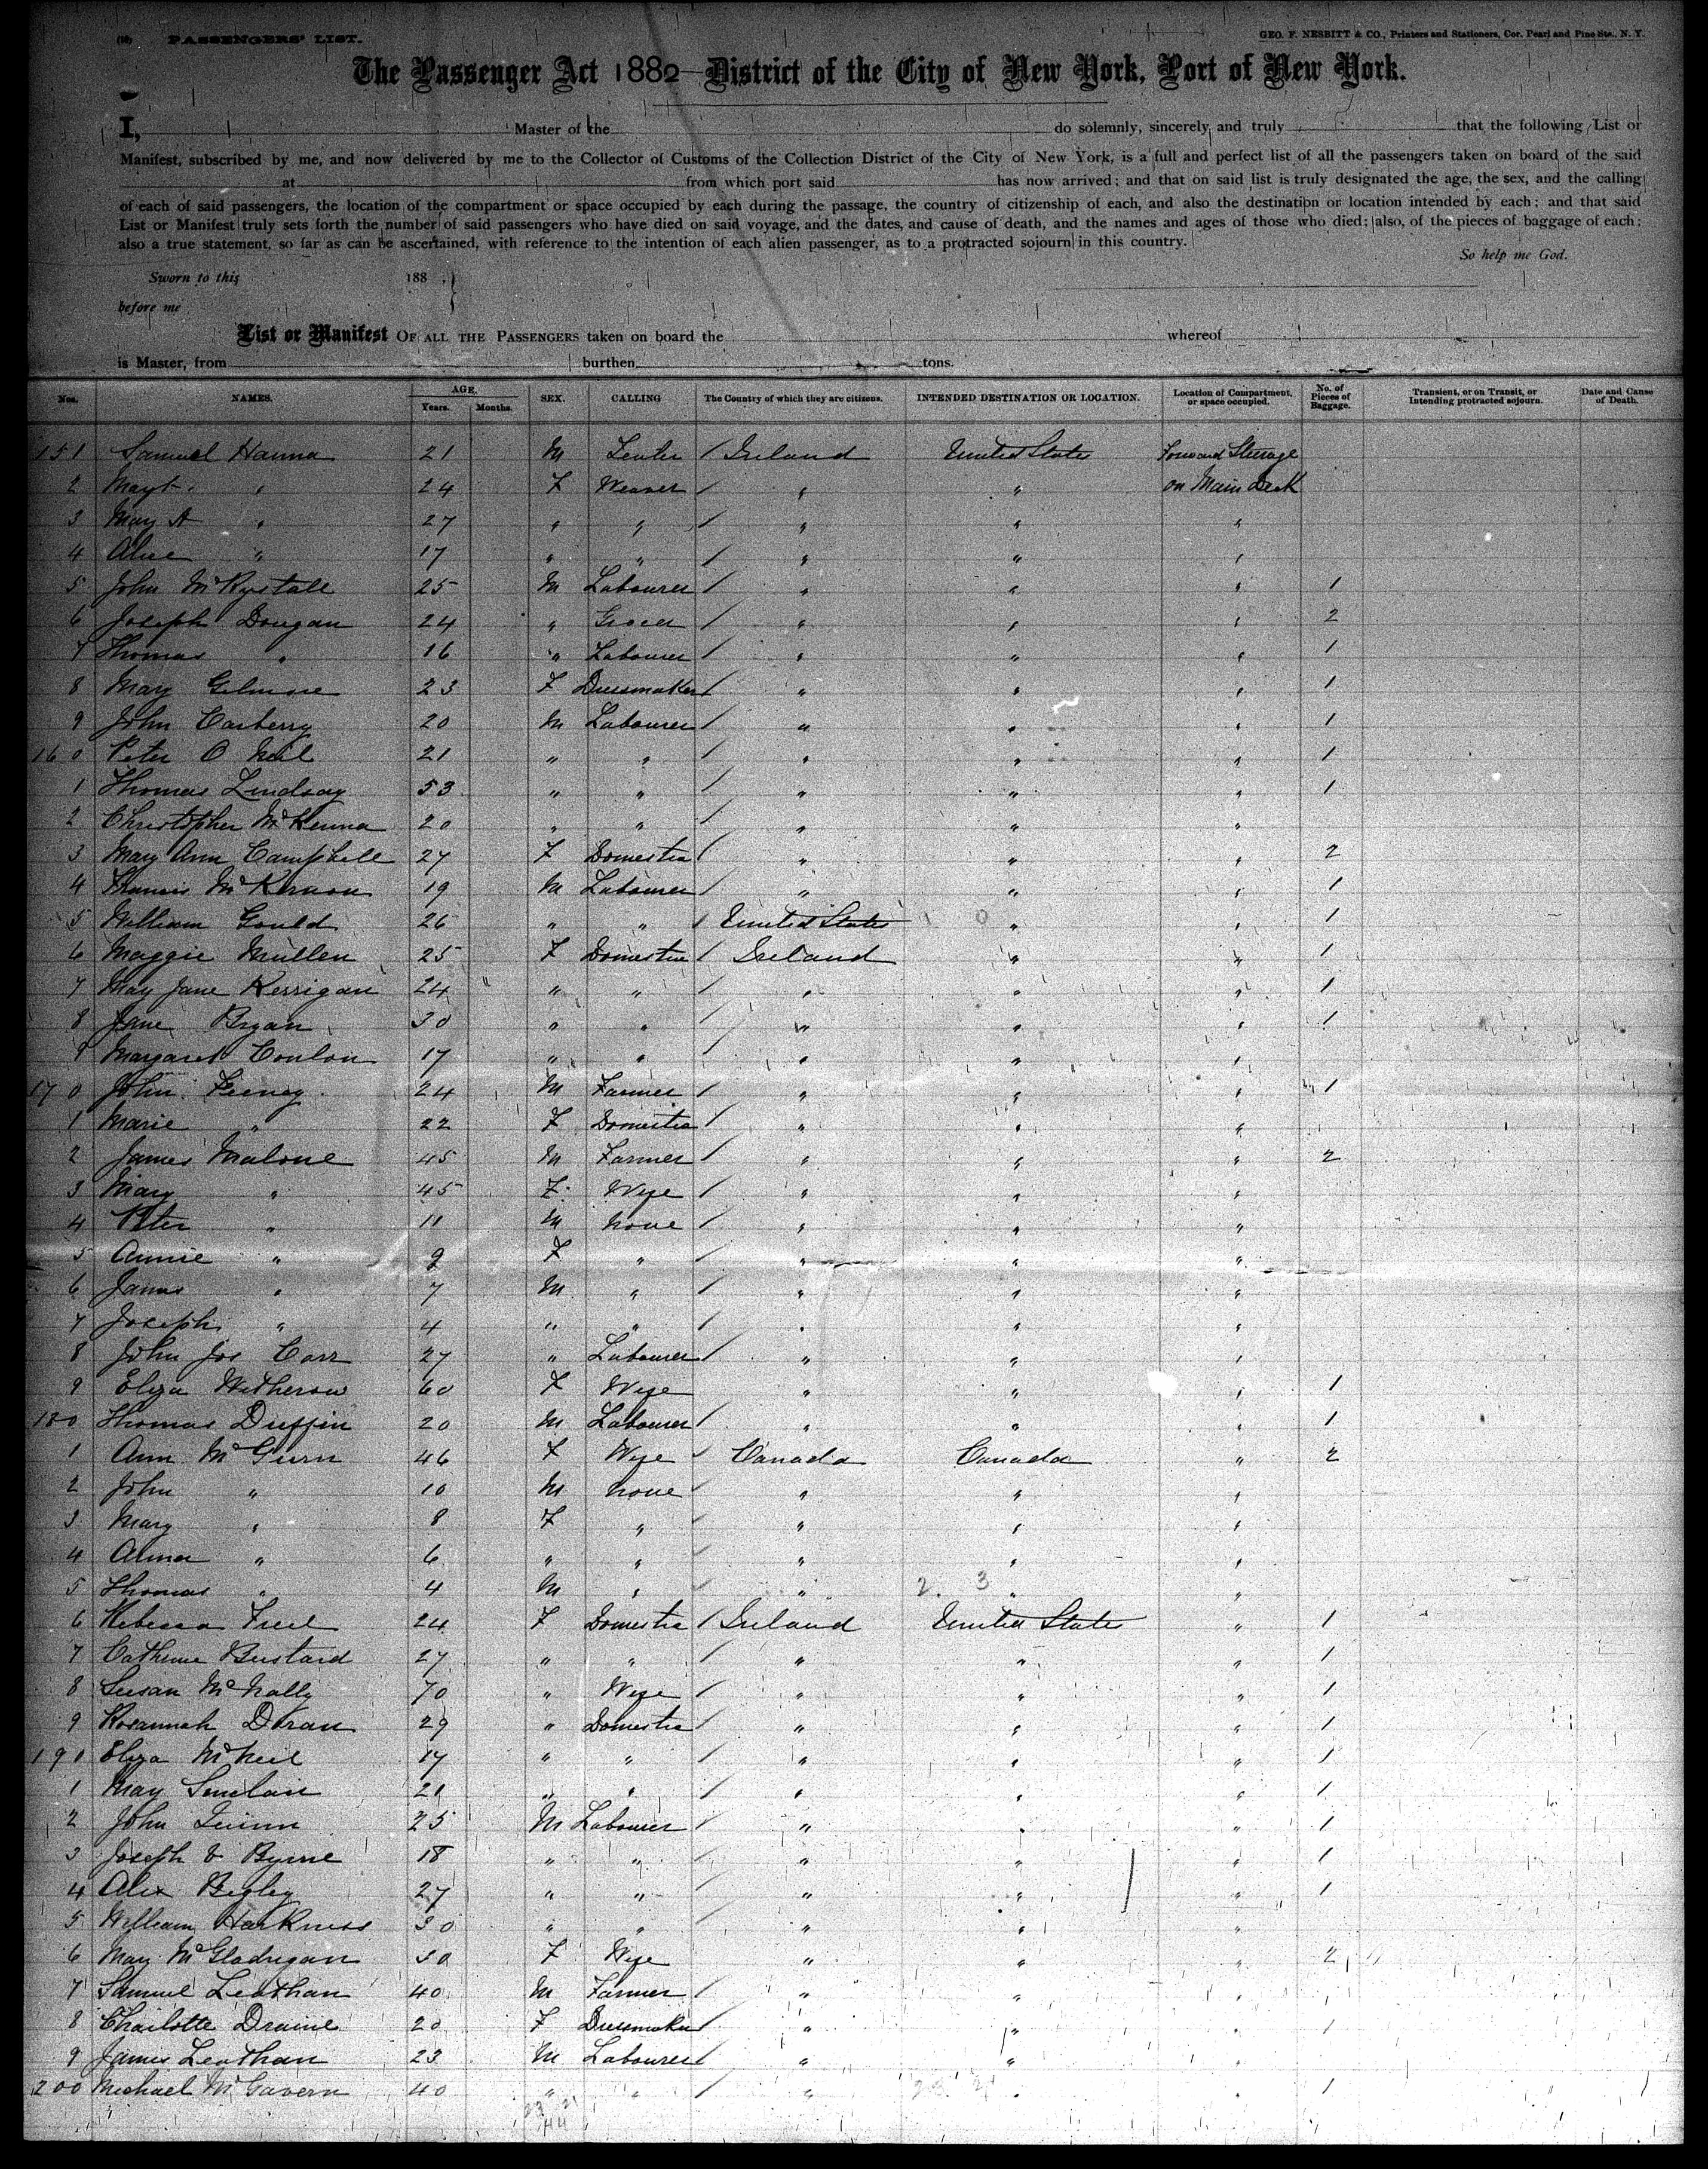 (18) PASSENGERS' LIST. GEO. F. NESBITT & CO., Printers and Stationers, Cor. Pearl and Pine Sts., N. Y.
The Passenger Act 1882 District of the City of New York, Port of New York.
I, Master of the do solemnly, sincerely and truly that the following List or
Manifest, subscribed by me, and now delivered by me to the Collector of Customs of the Collection District of the City of New York, is a full and perfect list of all the passengers taken on board of the said
at from which port said has now arrived; and that on said list is truly designated the age, the sex, and the calling
of each of said passengers, the location of the compartment or space occupied by each during the passage, the country of citizenship of each, and also the destination or location intended by each; and that said
List or Manifest truly sets forth the number of said passengers who have died on said voyage, and the dates, and cause of death, and the names and ages of those who died; also, of the pieces of baggage of each;
also a true statement, so far as can be ascertained, with reference to the intention of each alien passenger, as to a protracted sojourn in this country.
So help me God.
Sworn to this 188
before me
List or Manifest OF ALL THE PASSENGERS taken on board the whereof
is Master, from burthen tons.
Nos. NAMES. AGE. Years. Months. SEX. CALLING The Country of which they are citizens. INTENDED DESTINATION OR LOCATION. Location of Compartment, or space occupied. No. of Pieces of Baggage. Transient, or on Transit, or Intending protracted sojourn. Date and Cause of Death.
151 Samuel Hanna 21 M / Ireland United States Forward Steerage
2 " 24 F Weaver / " " on Main Deck
3 Mary A " 27 " " / " " "
4 Alice " 17 " " / " " "
5 John 25 M Labourer / " " " 1
6 Joseph Dougan 24 " Grocer / " " " 2
7 Thomas " 16 " Labourer / " " " 1
8 Mary Gilmore 23 F Dressmaker / " " " 1
9 John Carberry 20 M Labourer / " " " 1
160 Peter O Neil 21 " " / " " " 1
1 Thomas Lindsay 53 " " / " " " 1
2 Christopher McKenna 20 " " / " " "
3 Mary Ann Campbell 27 F Domestic / " " " 2
4 Francis McKernon 19 M Labourer / " " " 1
5 William Gould 26 " " / United States 0 " " 1
6 Maggie Mullen 25 F Domestic / Ireland " " 1
7 Mary Jane Kerrigan 24 " " / " " " 1
8 Jane Bryan 30 " " / " " " 1
9 Margaret Conlon 17 " " / " " "
170 John Feeney 24 M Farmer / " " " 1
1 Marie " 22 F Domestic / " " "
2 James Malone 45 M Farmer / " " " 2
3 Mary " 45 F Wife / " " "
4 Peter " 11 M None / " " "
5 Annie " 9 F " / " " "
6 James " 7 M " / " " "
7 Joseph " 4 " " / " " "
8 John Jos Carr 27 " Labourer / " " "
9 Eliza Witherow 60 F Wife " " " 1
180 Thomas Duffin 20 M Labourer / " " " 1
1 Ann McGurn 46 F Wife / Canada Canada " 2
2 John " 10 M None / " " "
3 Mary " 8 F " " " "
4 " 6 " " / " " "
5 Thomas " 4 M " / " 2. 3 " "
6 Rebecca Freel 24 F Domestic / Ireland United States " 1
7 Catherine Bustard 27 " " / " " " 1
8 Susan McNally 70 " Wife / " " " 1
9 Rosannah Doran 29 " Domestic / " " " 1
190 Eliza McNeil 17 " " / " " " 1
1 Mary Sinclair 21 " " / " " " 1
2 John Quinn 25 M Labourer / " " " 1
3 Joseph Byrne 18 " " / " " " 1
4 Alex Begley 27 " " / " " " 1
5 William Harkness 30 " " / " " "
6 Mary McGladrigan 30 F Wife " " " 2
7 Samuel Leathan 40 M Farmer / " " " 1
8 Charlotte Draine 20 F Dressmaker / " " " 1
9 James Leathan 23 M Labourer / " " "
200 Michael McGavern 40 " " / " " " 1
23 21
44